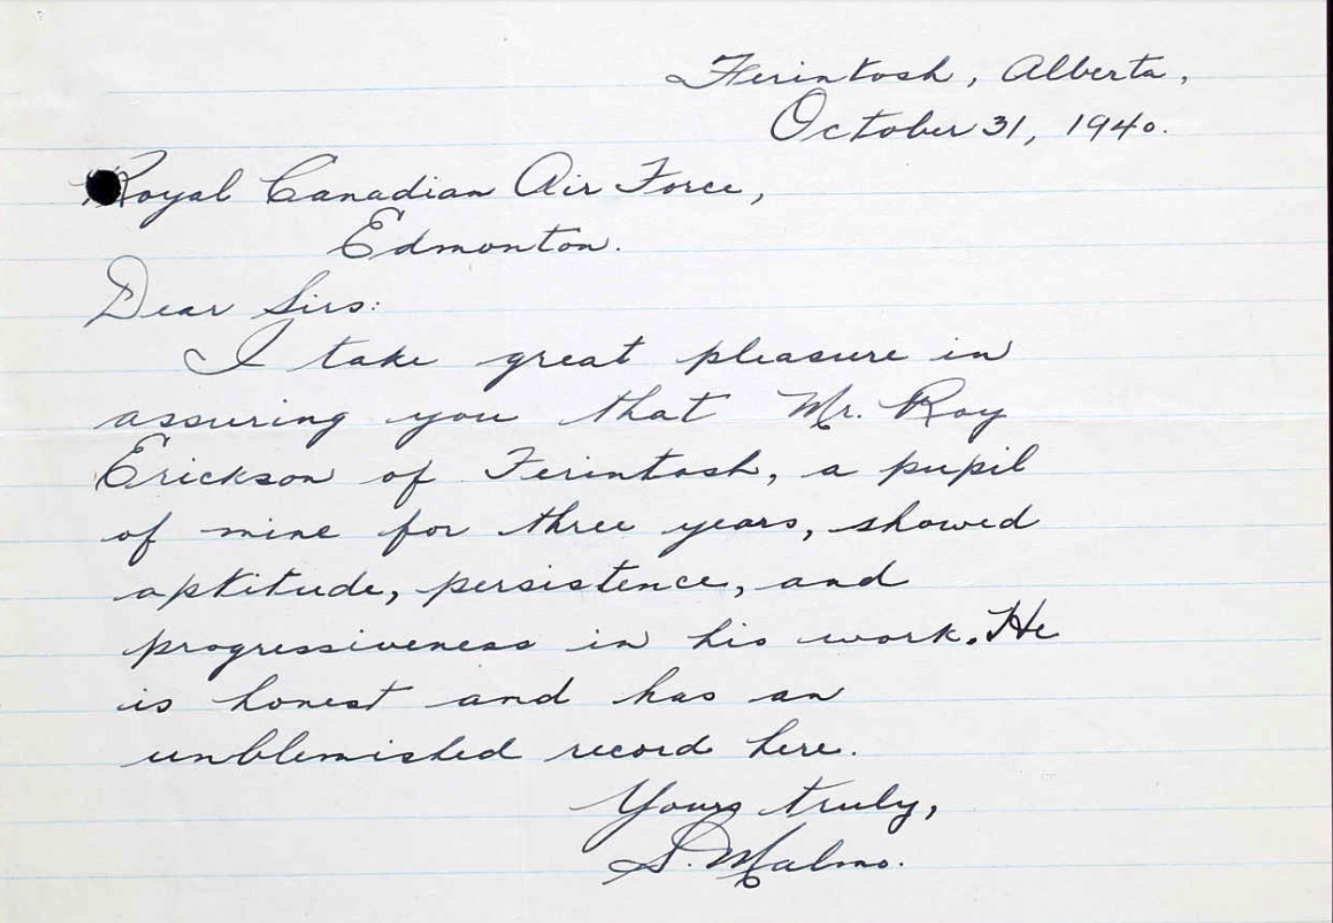 Ferintosh, Alberta,
October 31, 1940.
Royal Canadian Air Force,
Edmonton.
Dear Sirs:
I take great pleasure in
assuring you that Mr. Roy
Erickson of Ferintosh, a pupil
of mine for three years, showed
aptitude, persistence, and
progressiveness in his work. He
is honest and has an
unblemished record here.
Yours truly,
S. Malmo.